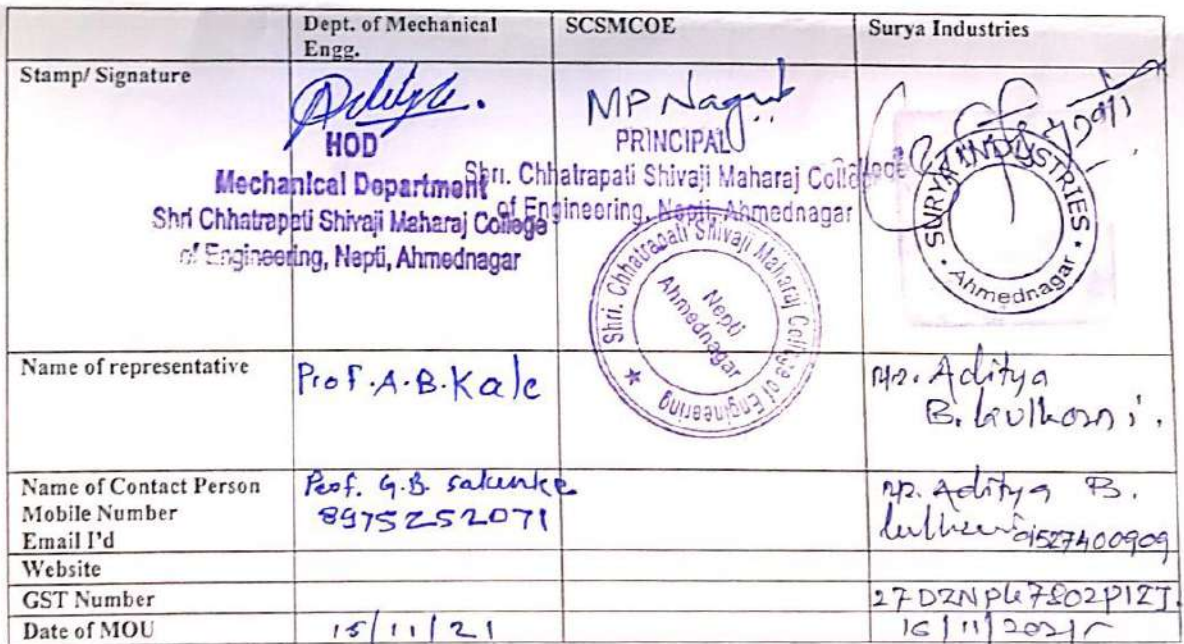 Dept. of Mechanical Engg.
SCSMCOE
Surya Industries
Stamp/ Signature
HOD
Mechanical Department
Shri Chhatrapati Shivaji Maharaj College
of Engineering, Nepti, Ahmednagar
MP Nagul
PRINCIPAL
Shri. Chhatrapati Shivaji Maharaj College
of Engineering, Nepti, Ahmednagar
Shri. Chhatrapati Shivaji Maharaj College of Engineering
Nepti
Ahmednagar
SURYA INDUSTRIES
Ahmednagar
Name of representative
Prof. A.B. Kale
Mr. Aditya
B.
Name of Contact Person
Mobile Number
Email I'd
Prof. G.B. Salunke
8975252071
Mr. Aditya B.
Website
GST Number
Date of MOU
15/11/21